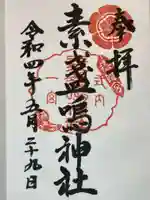 奉拝
素盞嗚神社
令和四年五月二十九日